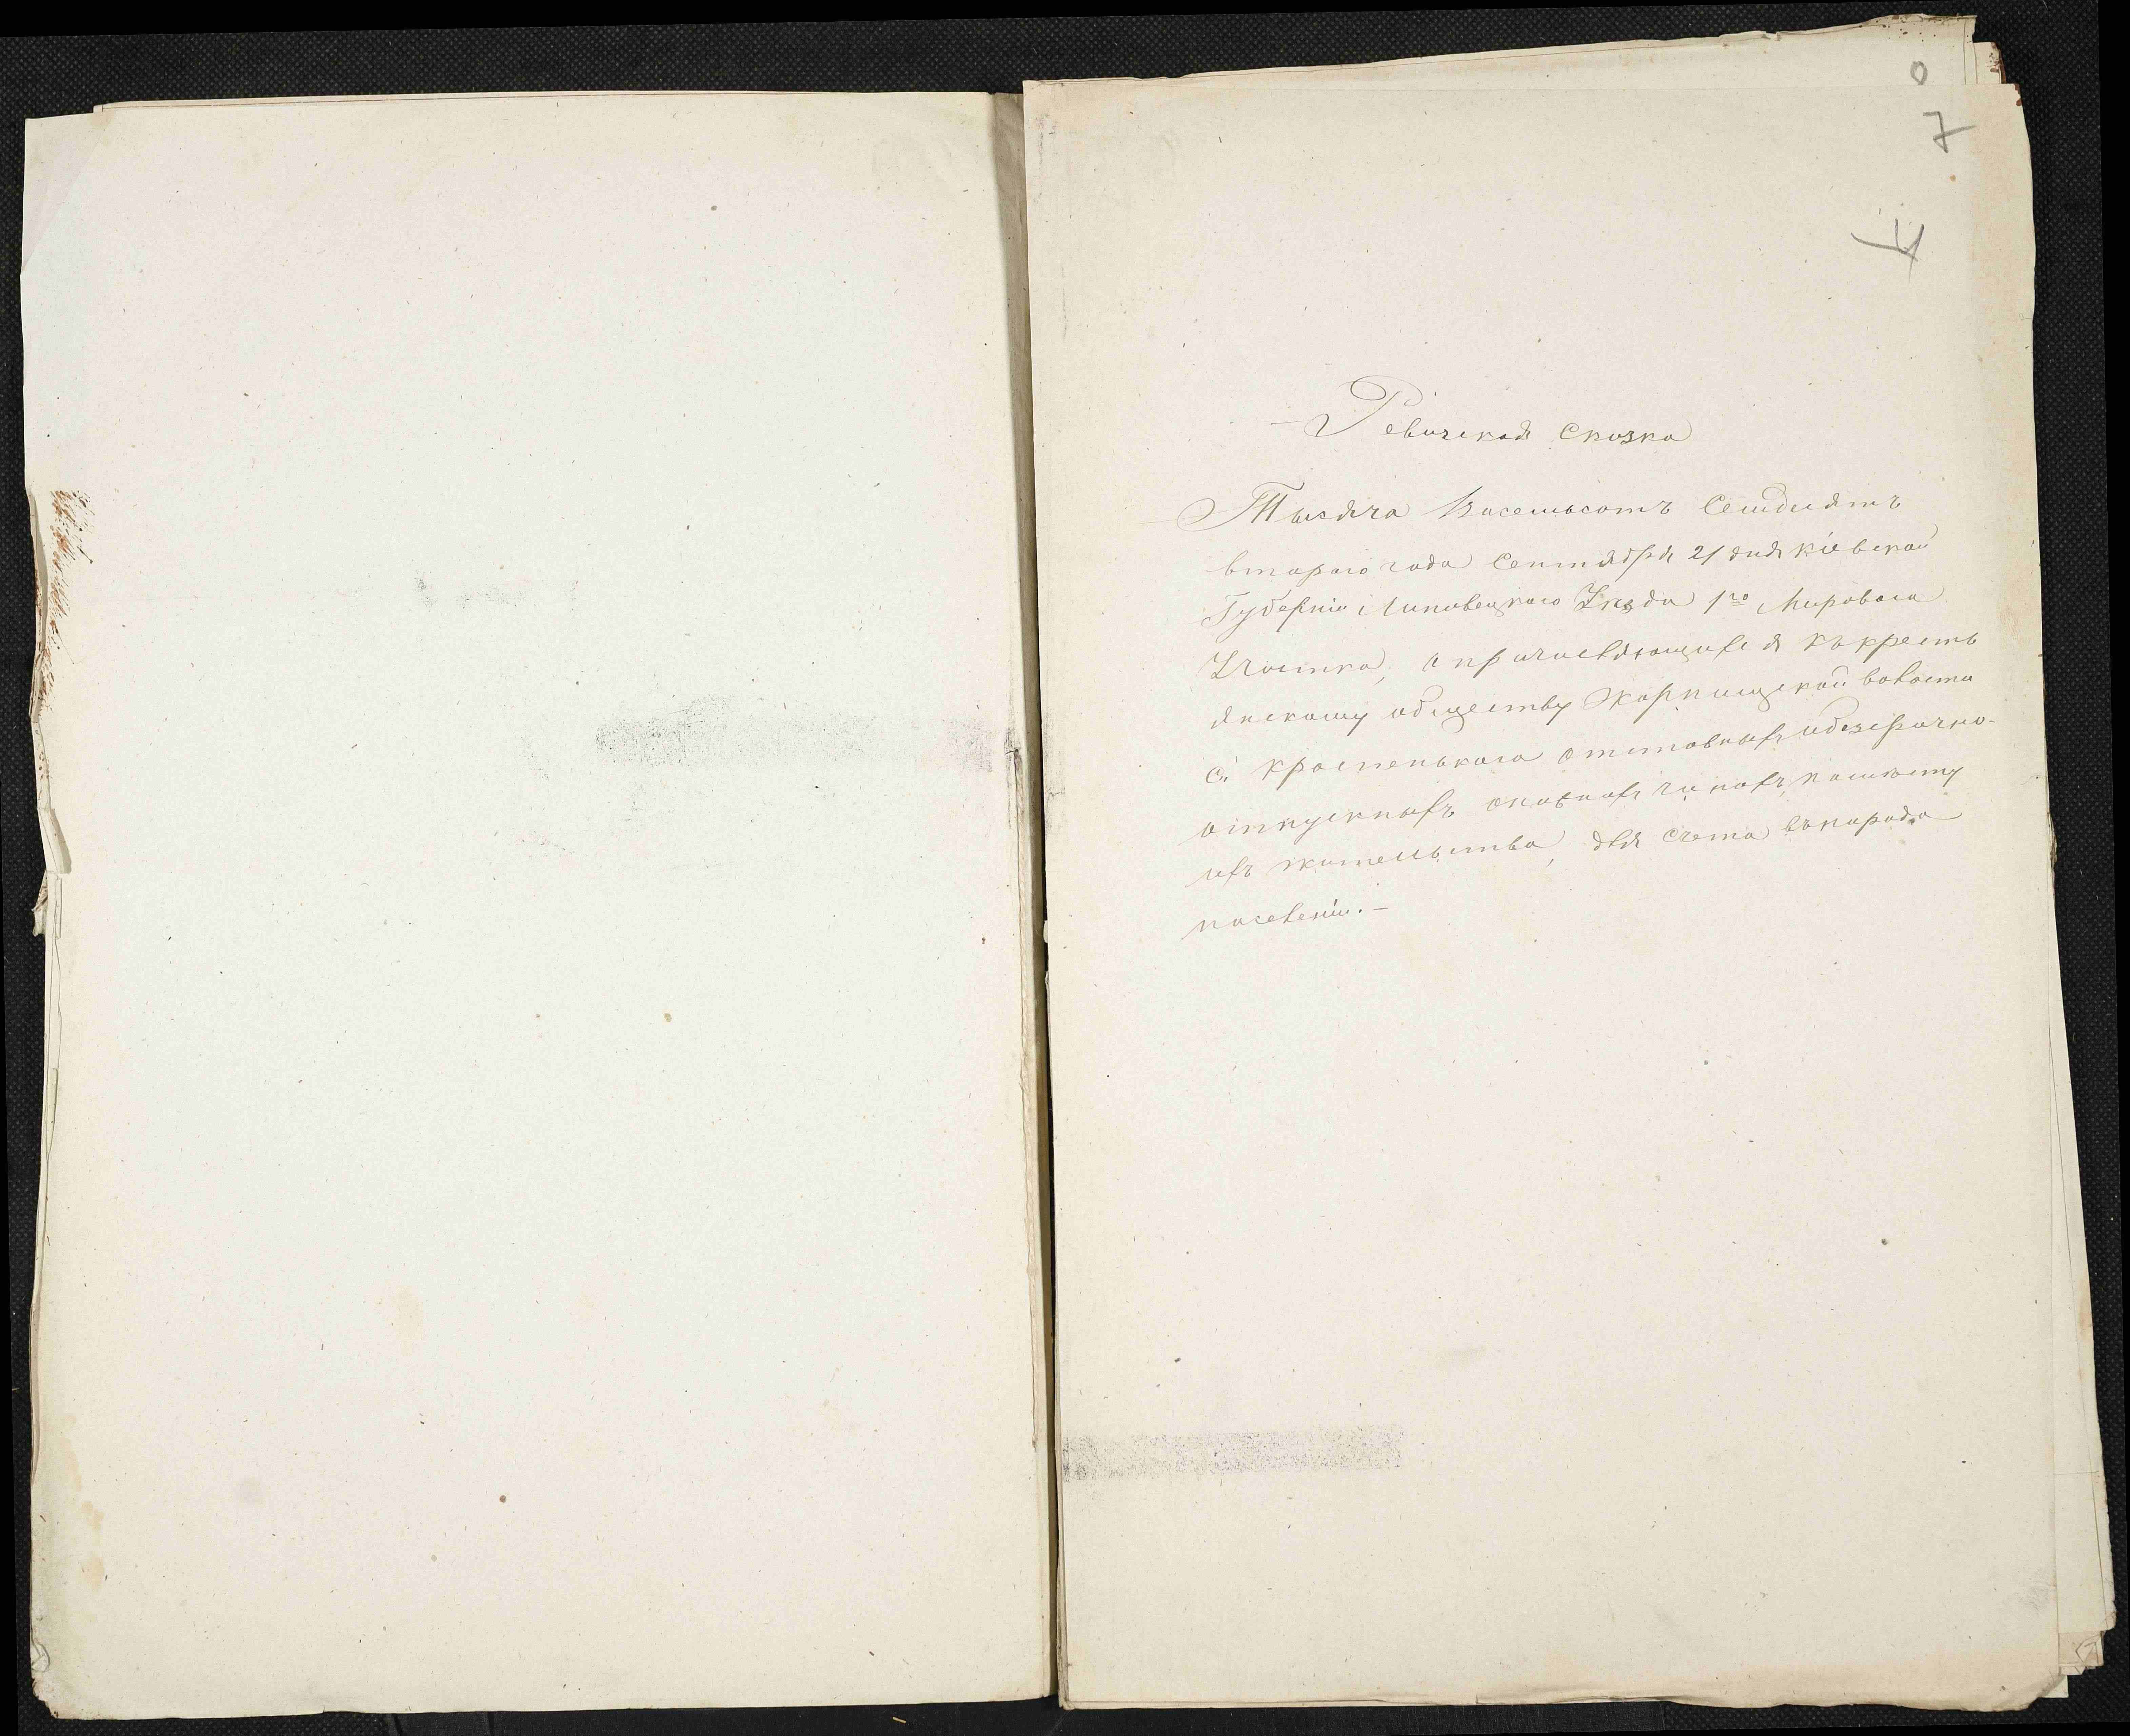 7
Ревизская Сказка
Тысяча Восемьсотъ Семдисятъ
втораго года Сентября 21 дня Кіевской
Губерніи Липовецкаго Уѣзда 1го Мироваго
Участка, о причисляющихся къ кресть
янскому обществу Жорнищской волости
С. Красненькаго отставныхъ и безсрочно-
отпускныхъ нижнихъ чиновъ, по
ихъ жительства, для счета въ народо
населеніи.-